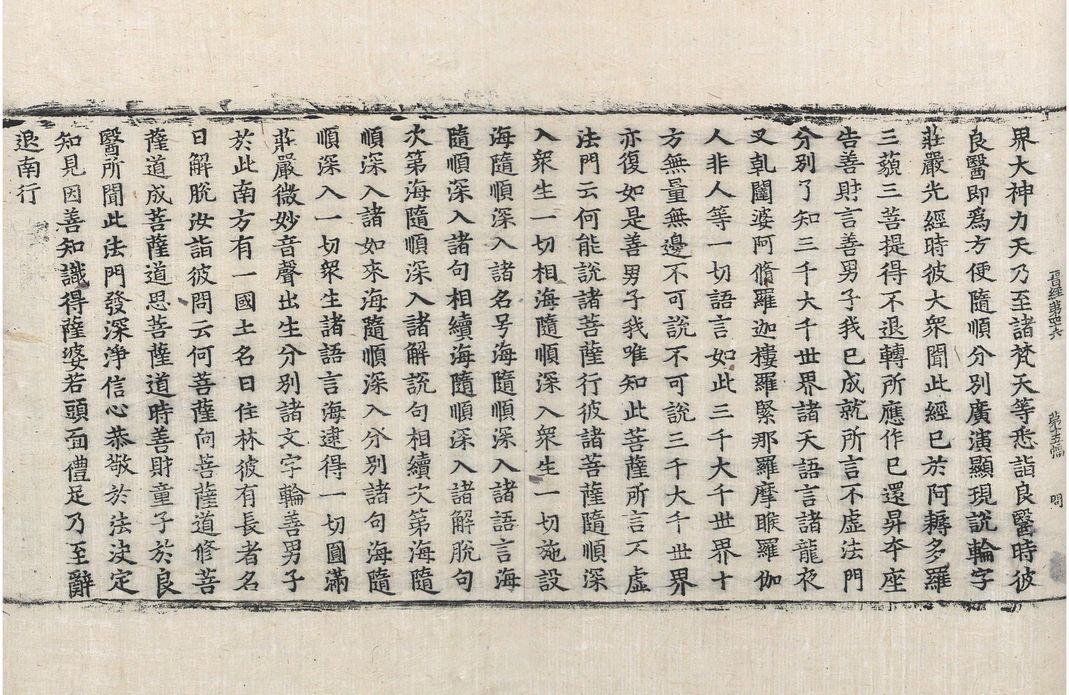 界大神力天乃至諸梵天等悉詣良醫時彼
良醫即爲方便隨順分別廣演顯現說輪字
莊嚴光經時彼大衆聞此經已於阿耨多羅
三藐三菩提得不退轉所應作已還昇夲座
告善財言善男子我已成就所言不虛法門
分別了知三千大千世界諸天語言諸龍夜
叉乹闥婆阿脩羅迦樓羅緊那羅摩睺羅伽
人非人等一切語言如此三千大千世界十
方無量無邊不可說不可說三千大千世界
亦復如是善男子我唯知此菩薩所言不虛
法門云何能說諸菩薩行彼諸菩薩隨順深
入衆生一切相海隨順深入衆生一切施設
海隨順深入諸名号海隨順深入諸語言海
隨順深入諸句相續海隨順深入諸解脫句
次第海隨順深入諸解說句相續次第海隨
順深入諸如來海隨順深入分別諸句海隨
順深入一切衆生諸語言海逮得一切圓滿
莊嚴微妙音聲出生分別諸文字輪善男子
於此南方有一國土名曰住林彼有長者名
曰解脫汝詣彼問云何菩薩向菩薩道修菩
薩道成菩薩道思菩薩道時善財童子於良
醫所聞此法門發深淨信心恭敬於法決定
知見因善知識得薩婆若頭面禮足乃至辭
退南行
晉經第四十六 第十五幅 問